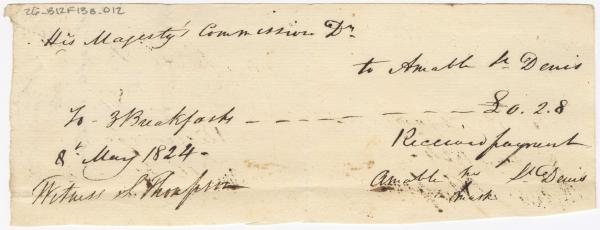 2G_B12F13B_012
His Majesty's Commission Dr
to Amable St Denis
To 3 Breakfasts - - - - - - £0.2.8
8t May 1824 - Received payment
Witness Thompson Amable his St Denis
mark